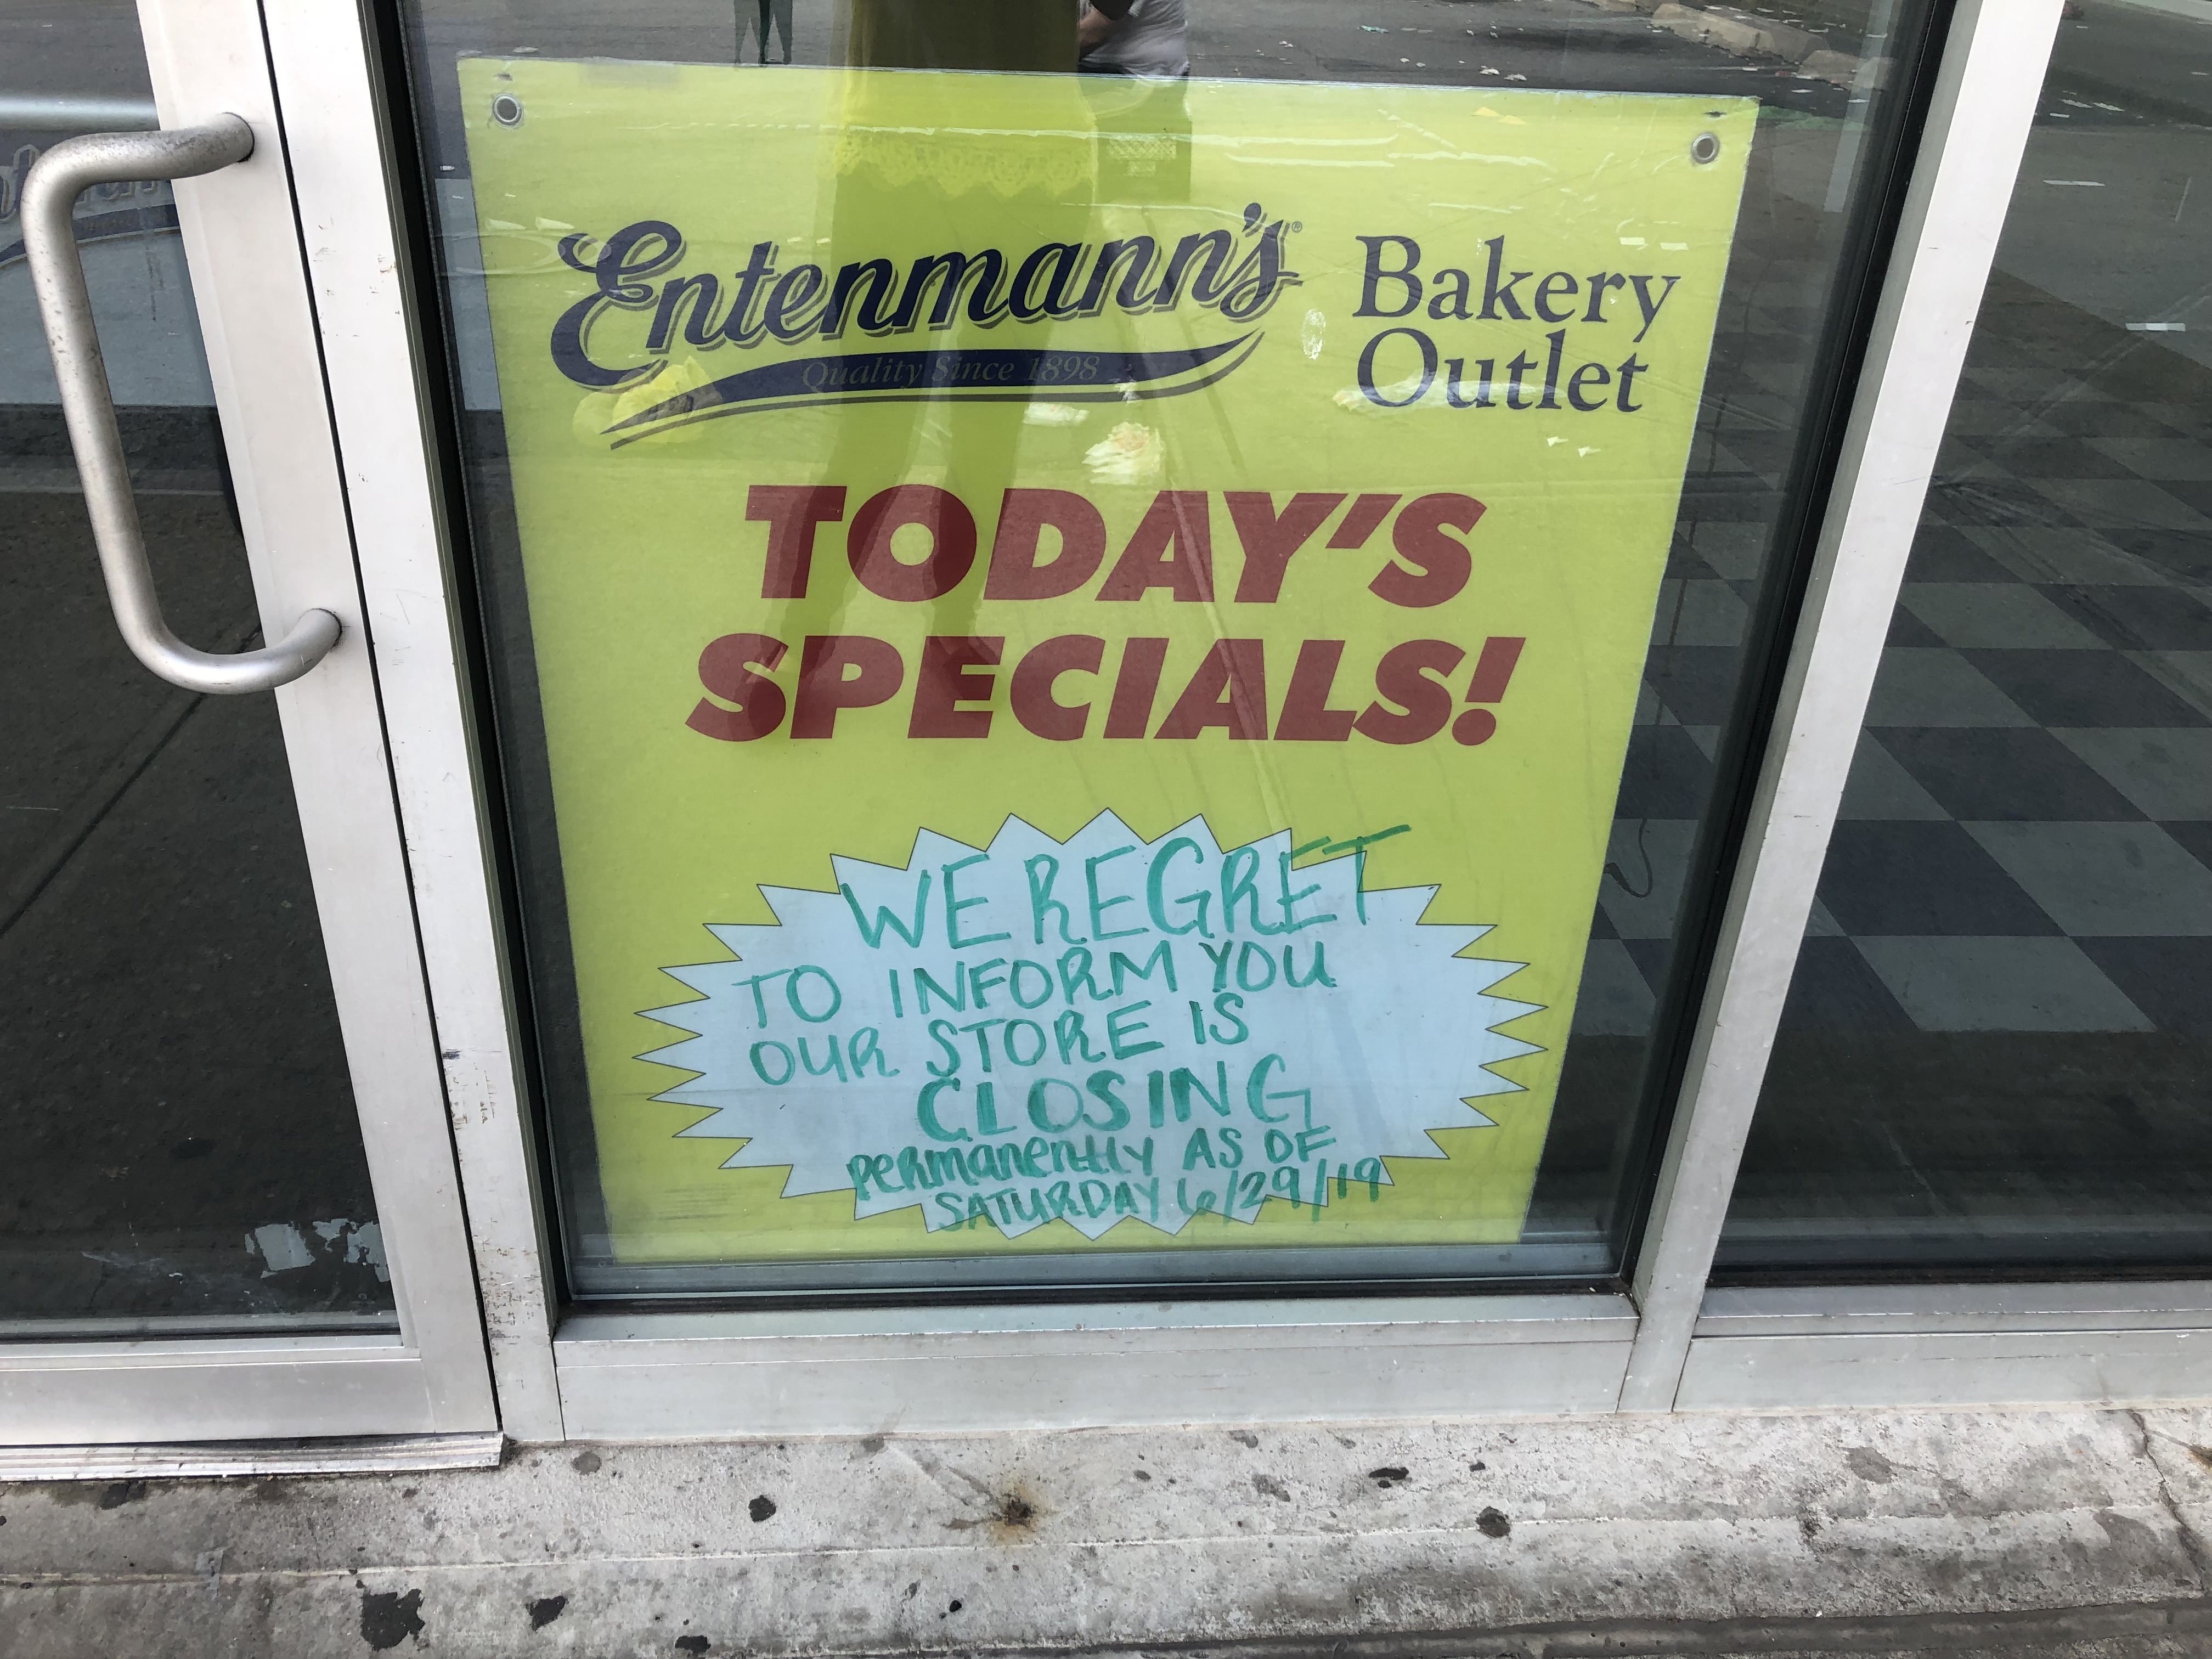 Entenmann's®
Quality Since 1898
Bakery
Outlet
TODAY'S
SPECIALS!
WE REGRET
TO INFORM YOU
OUR STORE IS
CLOSING
permanently AS OF
SATURDAY 6/29/19